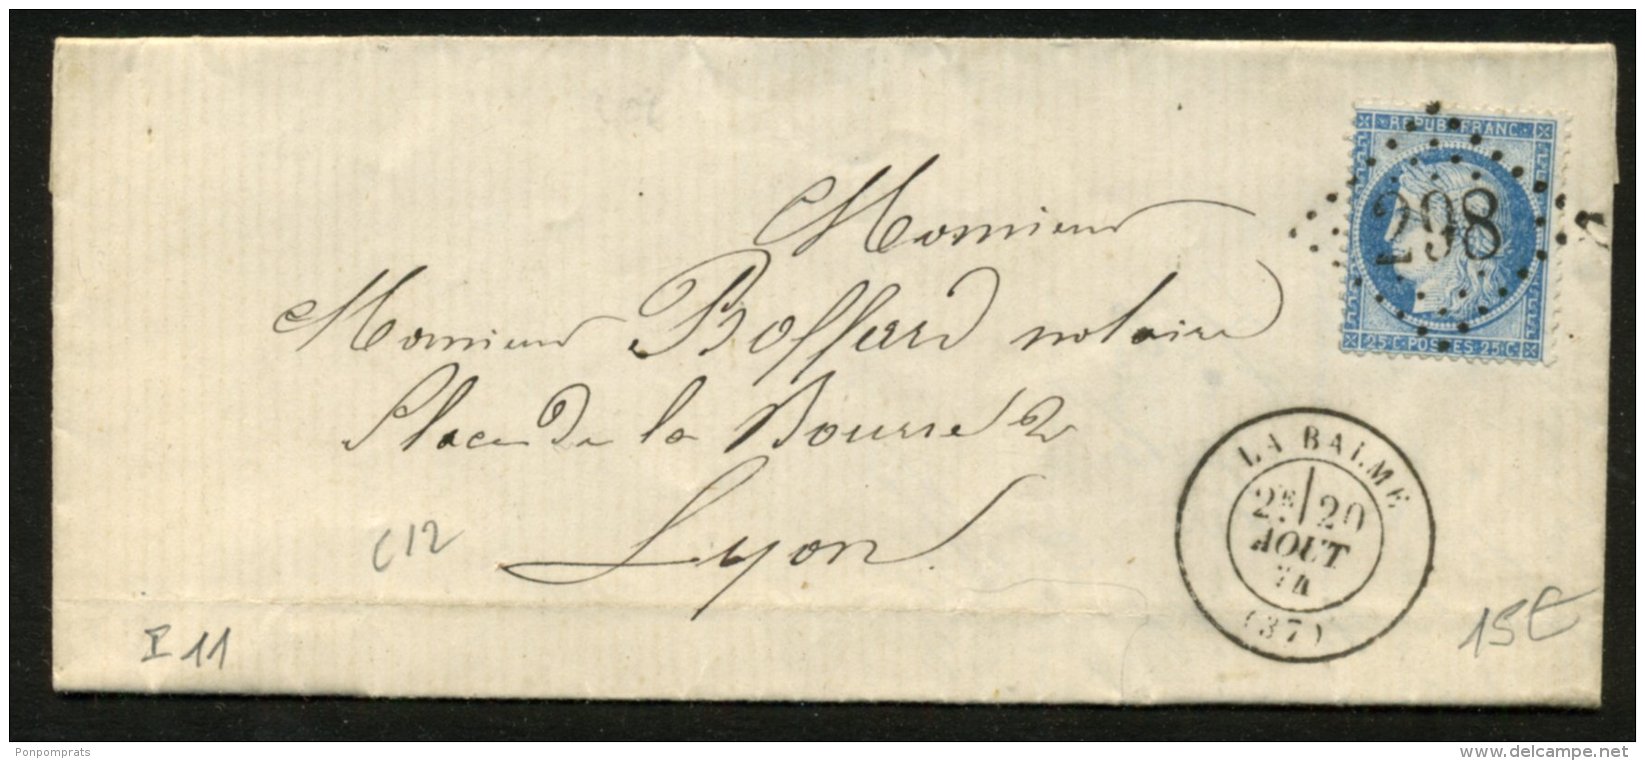 REPUB FRANC
298
25·C·POSTES·25·C
Monsieur
Monsieur Boffard notaire
Place de la Bourse 2
Lyon
LA BALME
2E 20
AOUT
74
(37)
C12
I 11
15€
Ponpomprats
www.delcampe.net